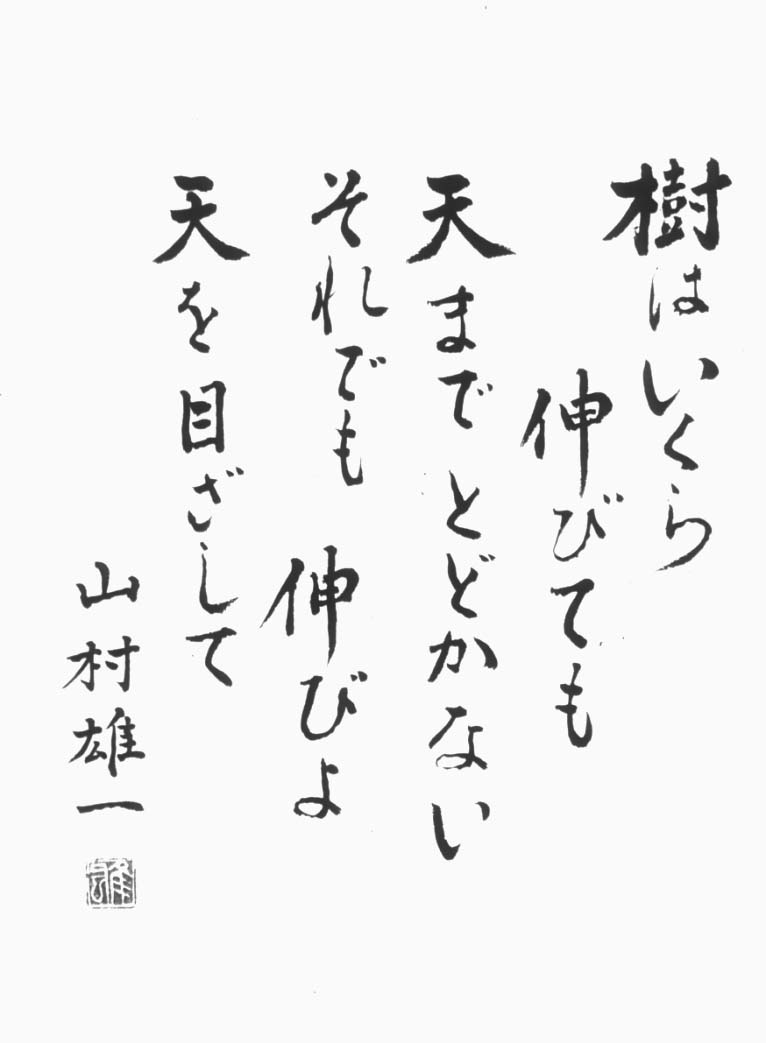 樹はいくら
伸びても
天までとどかない
それでも伸びよ
天を目ざして
山村雄一
雄